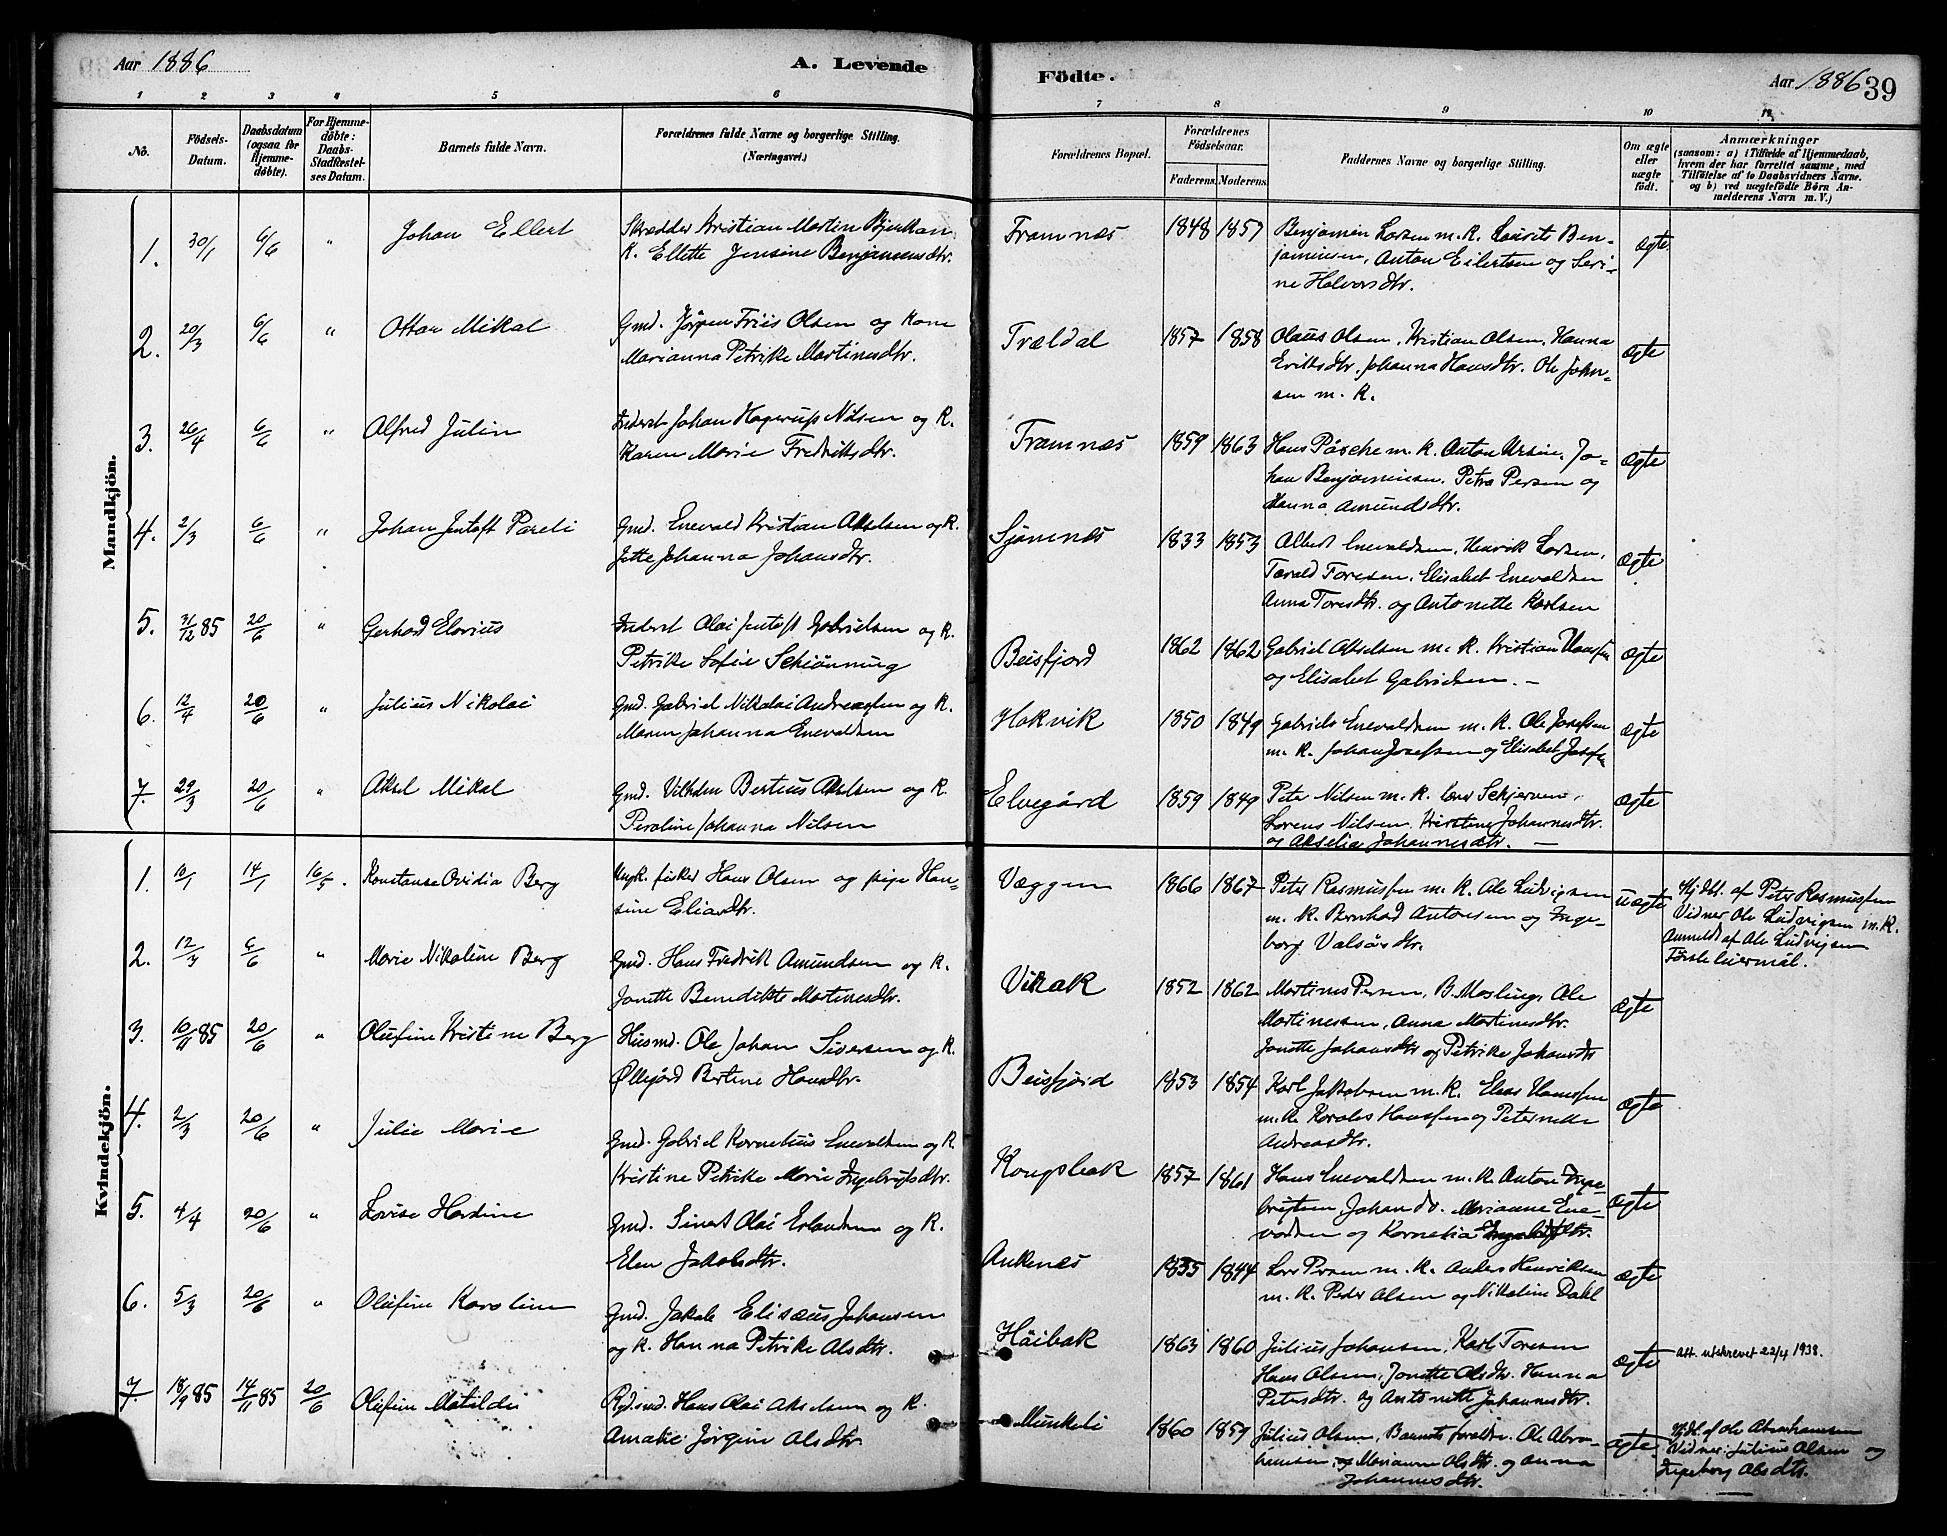 Aar 1886
A. Levende
Födte.
Aar 1886 39
1 2 3 4 5 6 7 8 9 10 11
No.
Födsels-
Datum.
Daabsdatum
(ogsaa for
Hjemme-
döbte).
For Hjemme-
döbte:
Daabs-
Stadfæstel-
ses Datum.
Barnets fulde Navn.
Forældrenes fulde Navne og borgerlige Stilling.
(Næringsvei.)
Forældrenes Bopæl.
Forældrenes
Födselsaar.
Faderens. Moderens.
Faddernes Navne og borgerlige Stilling.
Om ægte
eller
uægte
födt.
Anmærkninger
(saasom: a) i Tilfælde af Hjemmedaab,
hvem der har forrettet samme, med
Tilföielse af to Daabsvidners Navne.
og b) ved uægtefödte Börn An-
melderens Navn m. V.)
Mandkjön.
1. 30/1 6/6 " Johan Ellert
Skrædder Kristian Martin Bjerkan
K. Ellette Jensine Benjaminsdtr.
Framnæs 1848 1857
Benjamin Larsen m. K. Laurits Ben-
jaminsen, Anton Eilertsen og Seri-
ne Halvorsdtr.
ægte
2. 20/3 6/6 " Ottar Mikal
Gmd. Jørgen Friis Olsen og Kone
Marianna Petrike Martinusdtr.
Trældal 1857 1858
Olaus Olsen, Kristian Olsen, Hanna
Eriksdtr. Johanna Hansdtr. Ole John-
sen m. K.
ægte
3. 26/4 6/6 " Alfred Julin
Inderst Johan Hagerup Nilsen og K.
Karen Marie Fredriksdtr.
Framnæs 1859 1863
Hans Påsche m. K. Anton Ursin, Jo-
han Benjaminsen, Petra Persen og
Hanna Amundsdtr.
ægte
4. 2/3 6/6 " Johan Jentoft Pareli
Gmd. Enevald Kristian Akselsen og K.
Jette Johanna Johansdtr.
Sjømnæs 1833 1853
Albert Enevaldsen, Henrik Larsen,
Tarald Toresen, Elisabet Enevaldsen
Anna Toresdtr. og Antonette Karlsen
ægte
5. 31/12 85 20/6 " Gerhard Elorius
Inderst Olai Jentoft Gabrielsen og K.
Petrike Sofie Schiønning
Beisfjord 1862 1862
Gabriel Akselsen m. K. Kristian Hansen
og Elisabet Gabrielsen. –
ægte
6. 12/4 20/6 " Julius Nikolai
Gmd. Gabriel Nikolai Andreassen og K.
Maren Johanna Enevaldsen
Hakvik 1850 1849
Gabriel Enevaldsen m. K. Ole Josefsen
m. K. Johan Josefsen og Elisabet Josefsen
ægte
7. 29/3 20/6 " Aksel Mikal
Gmd. Vilhelm Bertius Akselsen og K.
Peroline Johanna Nilsen
Elvegård 1859 1849
Peter Nilsen m. K. Schjerven,
Lorens Nilsen, Kirstine Johannesdtr.
og Akselia Johannesdtr. –
ægte
Kvindekjön.
1. 10/1 14/1 16/5. Konstanse Ovidia Berg
Ungk. fisker Hans Olsen og pige Han-
sine Eliasdtr.
Væggen 1866 1867
Peter Rasmussen m. K. Ole Ludvigsen
m. K. Bernhard Antonsen og Inge-
borg Valsøsdtr.
uægte
Hjdbt. af Peter Rasmussen
Vidner Ole Ludvigsen m. K.
Anmeldt af Ole Ludvigsen
Første leiermål.
2. 12/3 6/6 " Marie Nikoline Berg
Gmd. Hans Fredrik Amundsen og K.
Jonette Benedikte Martinesdtr.
Vikæk 1852 1862
Martines Persen, B. Mosling, Ole
Martinessen, Anna Martinesdtr.
Jonette Johansdtr og Petrike Johansdtr
ægte
3. 10/11 85 20/6 " Olufine Kristine Berg
Husmd. Ole Johan Siversen og K.
Øllegård Bertine Hansdtr.
Beisfjord 1853 1854
Karl Jakobsen m. K. Elias Hanssen
m. K. Karoles Hanssen og Peternelle
Andreasdtr.
ægte
4. 2/3 20/6 " Julie Marie
Gmd. Gabriel Kornelius Enevaldsen og K
Kristine Petrikke Marie Ingebrigtsdtr.
Kongsbak 1857 1861
Hans Enevaldsen m. K. Anton Inge-
brigtsen, Johan do. Marianne Ene-
valdsen og Kornelia Ingebrigtsdtr.
ægte
5. 4/4 20/6 " Lovise Hardine
Gmd. Sivert Olai Erlandsen og K.
Elen Jakobsdtr.
Ankenæs 1835 1844
Lars Persen m. K. Anders Henriksen
m. K. Peder Olsen og Nikoline Dahl
ægte
6. 5/3 20/6 " Olufine Karoline
Gmd. Jakob Elisæus Johansen
og K. Hanna Petrike Olsdtr.
Håibak 1863 1860
Julius Johansen, Karl Toresen
Hans Olsen, Jonette Olsdtr. Hanna
Petersdtr. og Antonette Johannesdtr.
ægte
Att. utskrevet 22/4 1938.
7. 18/9 85 14/11 85 20/6 Olufine Matilde
Rydsmd. Hans Olai Akselsen og K.
Amalie Jørgine Olsdtr
Munkeli 1860 1859
Julius Olsen, Barnets forældre. Ole Abra-
hamsen, og Marianne Olsdtr. og Anna
Johannesdtr.
ægte
Hjdbt. af Ole Abrahamsen
Vidner: Julius Olsen og
Ingeborg Olsdtr.